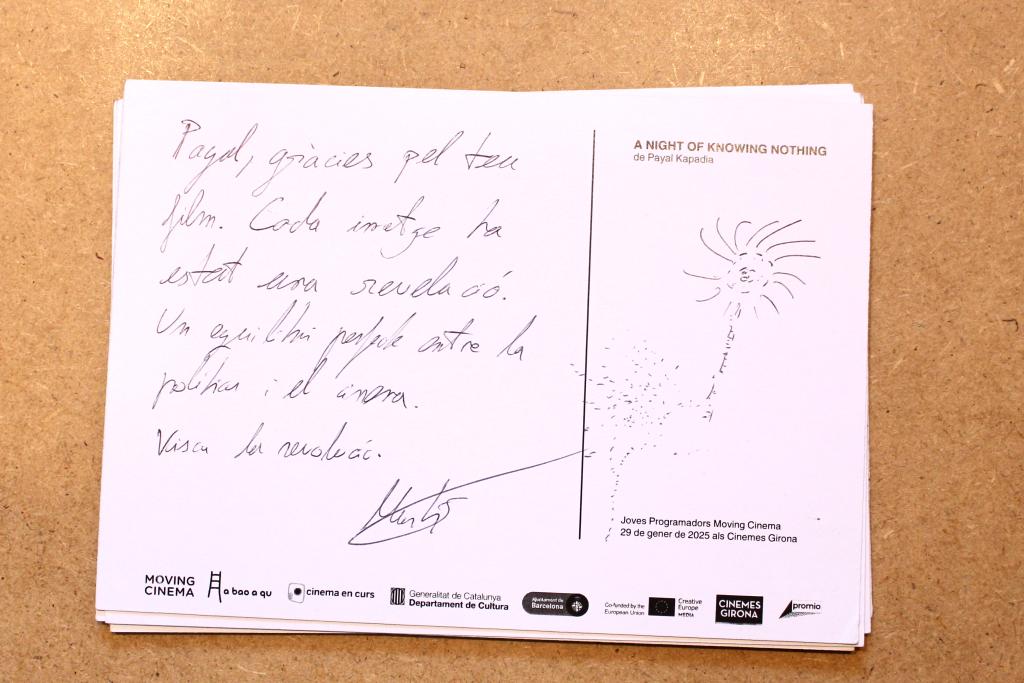 Payal, gràcies pel teu
film. Cada imatge ha
estat una revelació.
Un equilibri perfecte entre la
política i el cinema.
Visca la revolució.
A NIGHT OF KNOWING NOTHING
de Payal Kapadia
Joves Programadors Moving Cinema
29 de gener de 2025 als Cinemes Girona
MOVING
CINEMA
a bao a qu
cinema en curs
Generalitat de Catalunya
Departament de Cultura
Ajuntament de
Barcelona
Co-funded by the
European Union
Creative
Europe
MEDIA
CINEMES
GIRONA
promio